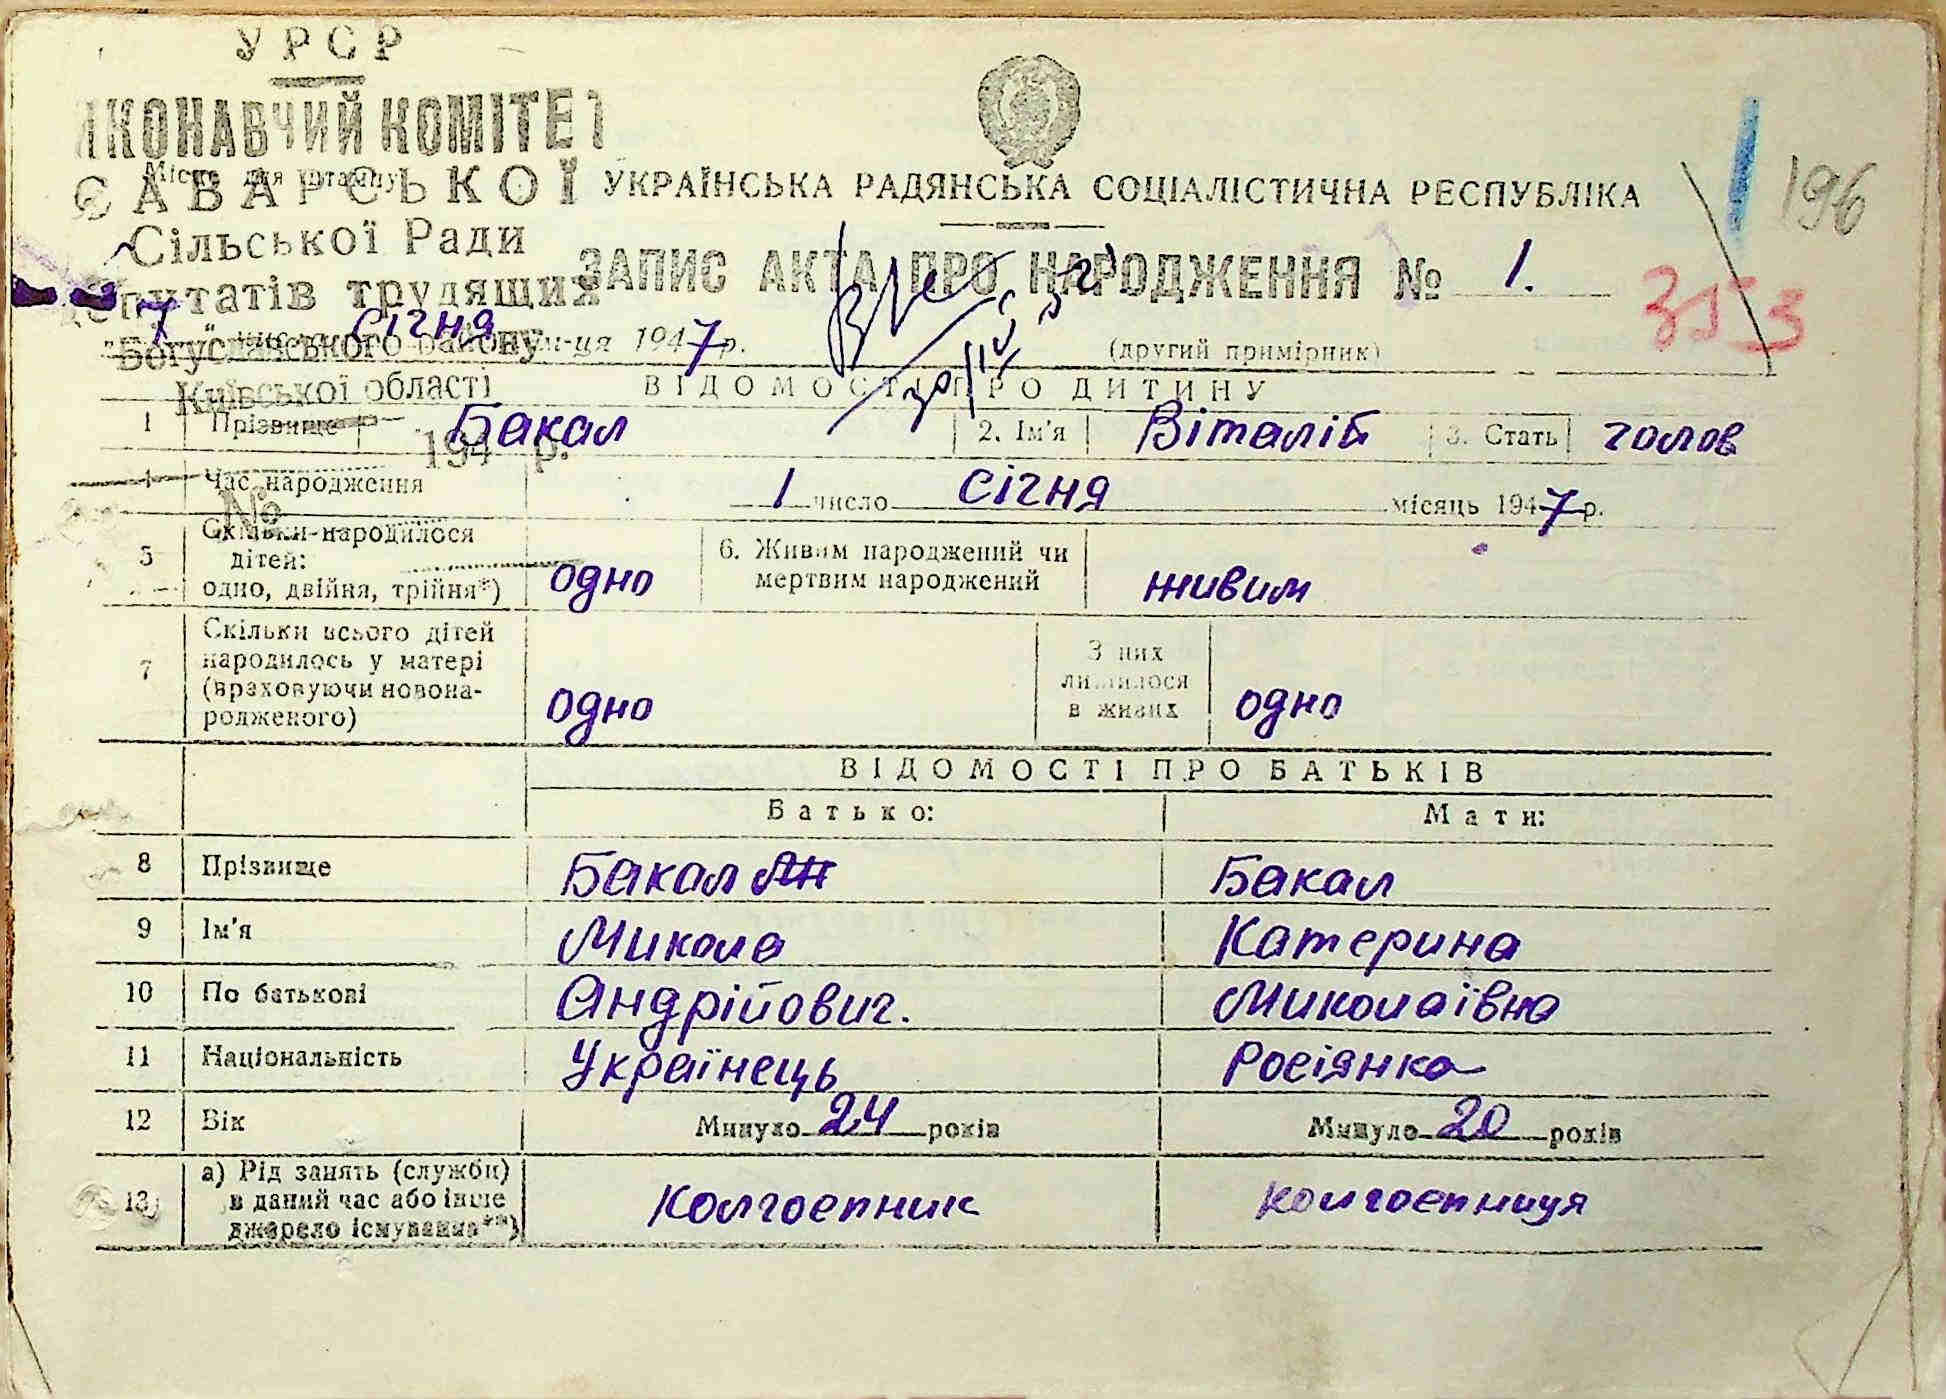 УРСР
КОНАВЧИЙ КОМІТЕТ
Місце для штампу
САВАРСЬКОЇ
УКРАЇНСЬКА РАДЯНСЬКА СОЦІАЛІСТИЧНА РЕСПУБЛІКА
196
Сільської Ради
ЗАПИС АКТА ПРО НАРОДЖЕННЯ № 1.
353
депутатів трудящих
7 січня м-ця 1947 р.
(другий примірник)
Богуславського району
Київської області
ВІДОМОСТІ ПРО ДИТИНУ
1 Прізвище Бакал 2. Ім'я Віталій 3. Стать голов
194 р.
4 Час народження 1 число січня місяць 1947 р.
№
5 Скільки народилося дітей: одно, двійня, трійня*) одно 6. Живим народжений чи мертвим народжений живим
7 Скільки всього дітей народилось у матері (враховуючи новонародженого) одно З них лишилося в живих одно
ВІДОМОСТІ ПРО БАТЬКІВ
Батько: Мати:
8 Прізвище Бакал Бакал
9 Ім'я Микола Катерина
10 По батькові Андрійович. Миколаївна
11 Національність Українець Росіянка
12 Вік Минуло 24 років Минуло 20 років
13 а) Рід занять (служби) в даний час або інше джерело існування**) Колгоспник колгоспниця